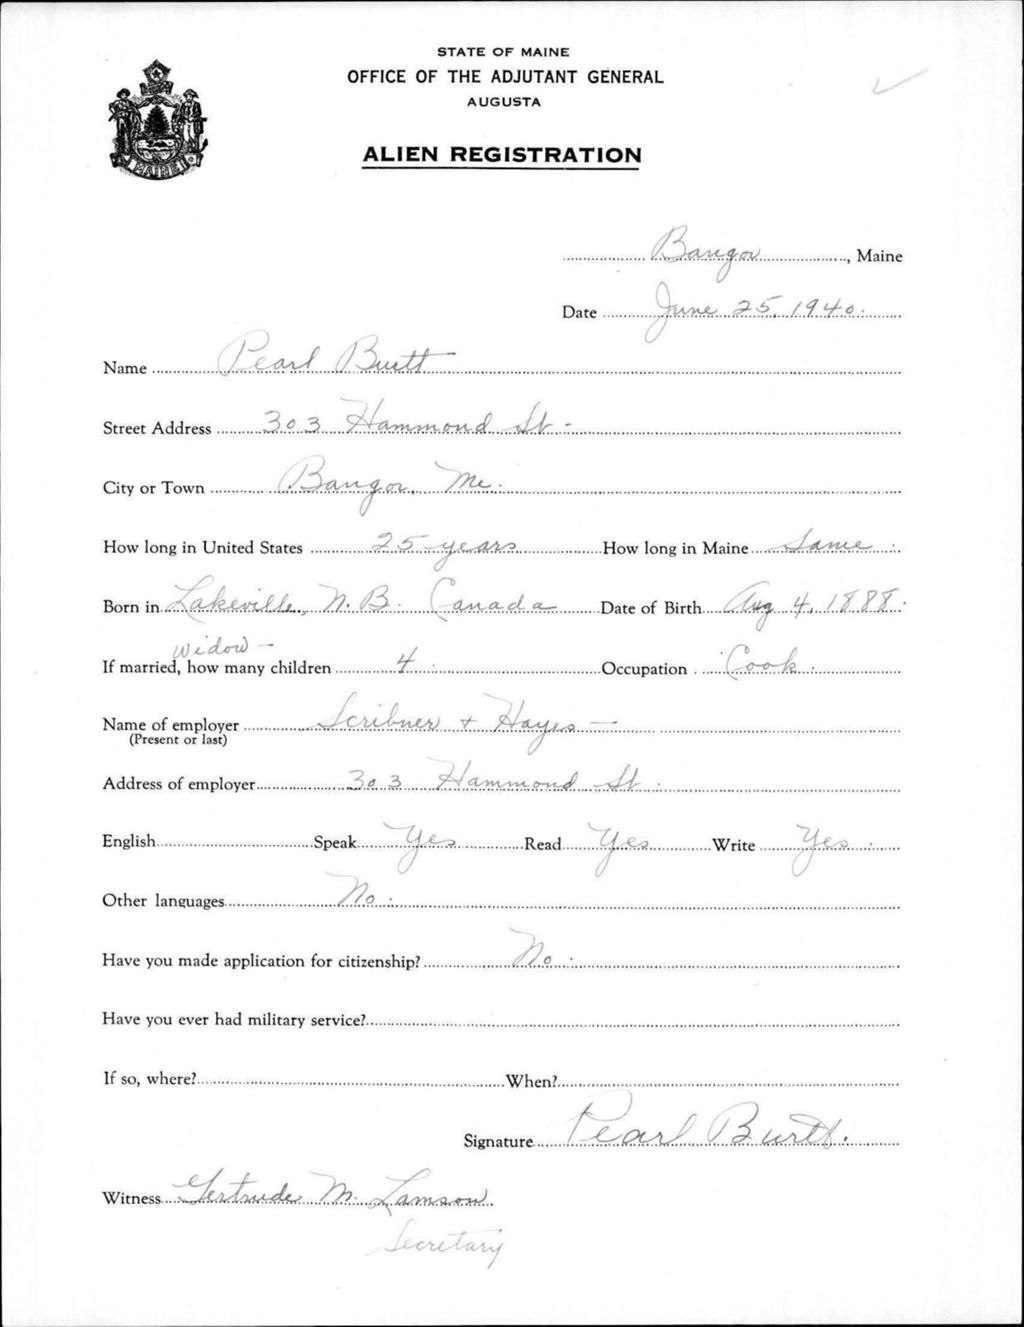 STATE OF MAINE
OFFICE OF THE ADJUTANT GENERAL
AUGUSTA
ALIEN REGISTRATION
MAINE
Bangor, Maine
Date June 25, 1940.
Name Pearl Burtt
Street Address 303 Hammond St -
City or Town Bangor, Me.
How long in United States 25 years How long in Maine Same.
Born in Lakeville, N. B. Canada Date of Birth Aug 4, 1888.
Widow -
If married, how many children 4 Occupation Cook.
Name of employer Scribner + Hayes -
(Present or last)
Address of employer 303 Hammond St.
English Speak Yes Read Yes Write Yes.
Other languages No.
Have you made application for citizenship? No.
Have you ever had military service?
If so, where? When?
Signature Pearl Burtt.
Witness Gertrude M. Lamson
Secretary